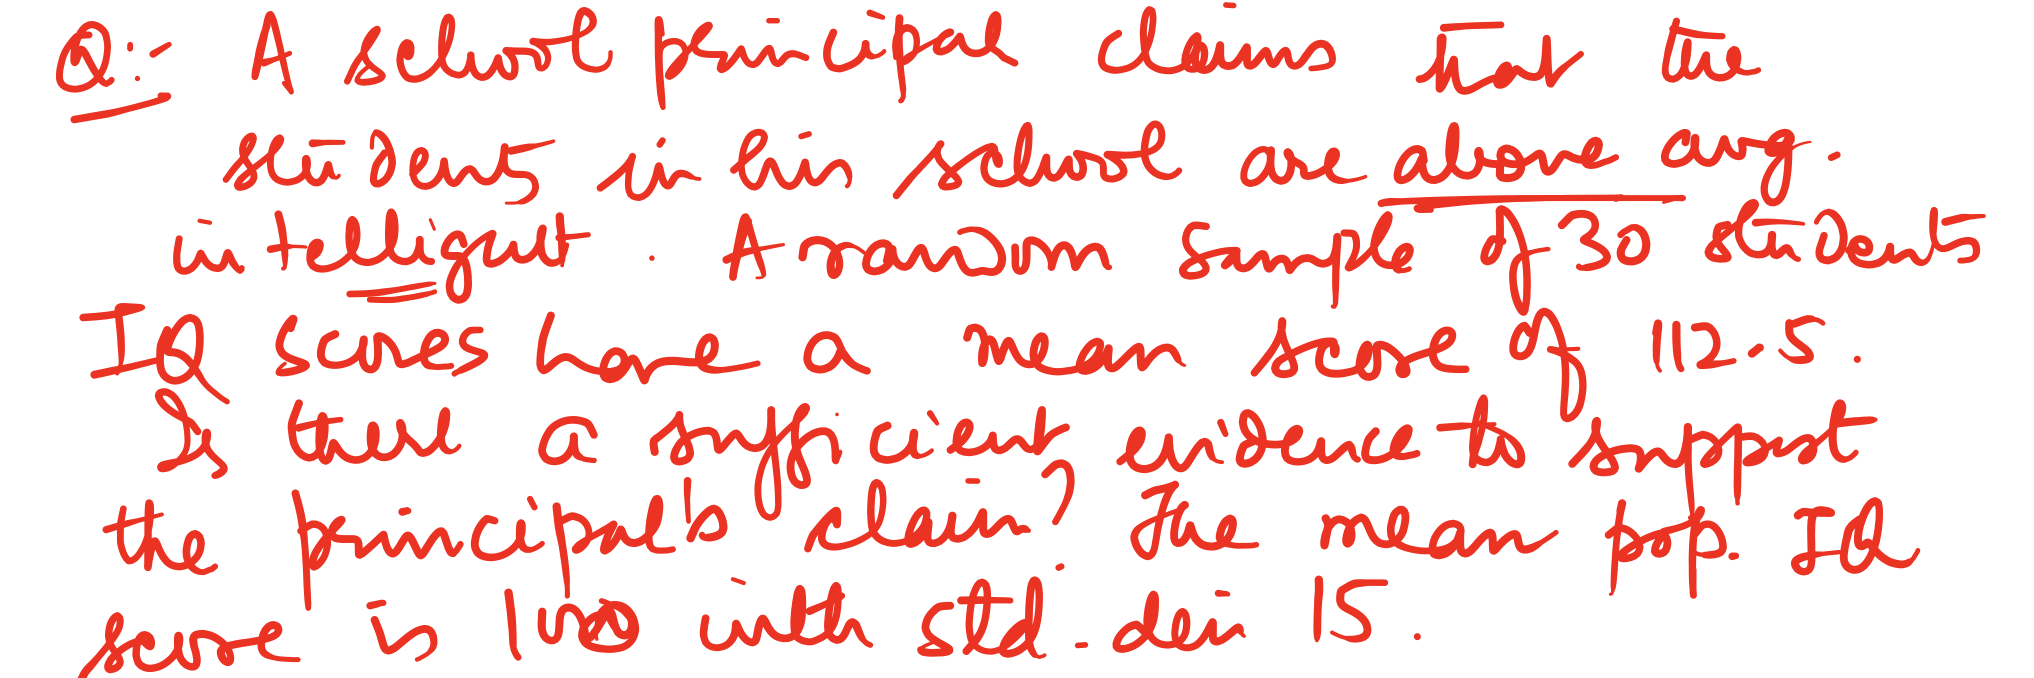 Q:- A school principal claims that the
students in his school are above avg.
intelligent. A random sample of 30 students
IQ scores have a mean score of 112.5.
Is there a sufficient evidence to support
the principal's claim? The mean pop. IQ
score is 100 with std. dev 15.